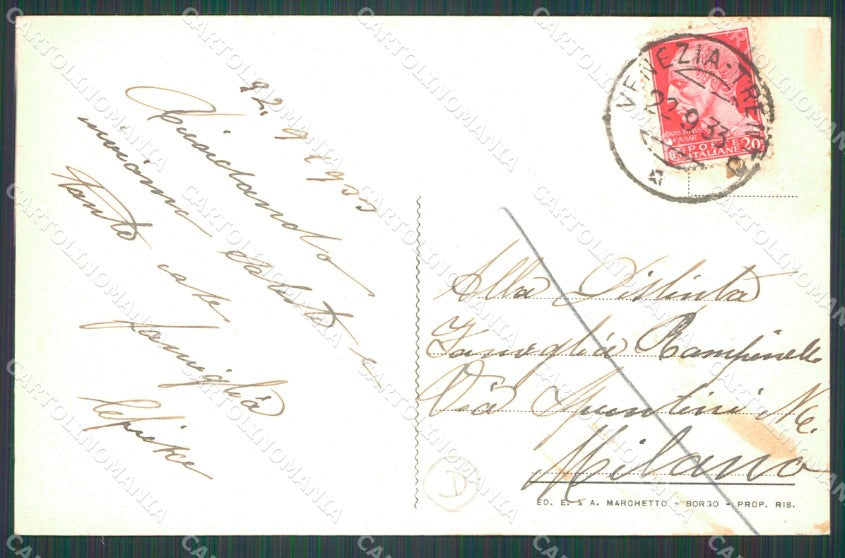 22.9.1933
Ricordando
Saluti e
tante care
famiglia
VENEZIA-TRE
22.9.33
POSTE ITALIANE 20
Alla Distinta
Famiglia Rampinelli
Via Spontini N.
Milano
A
ED. E. & A. MARCHETTO - BORGO - PROP. RIS.
CARTOLINOMANIA